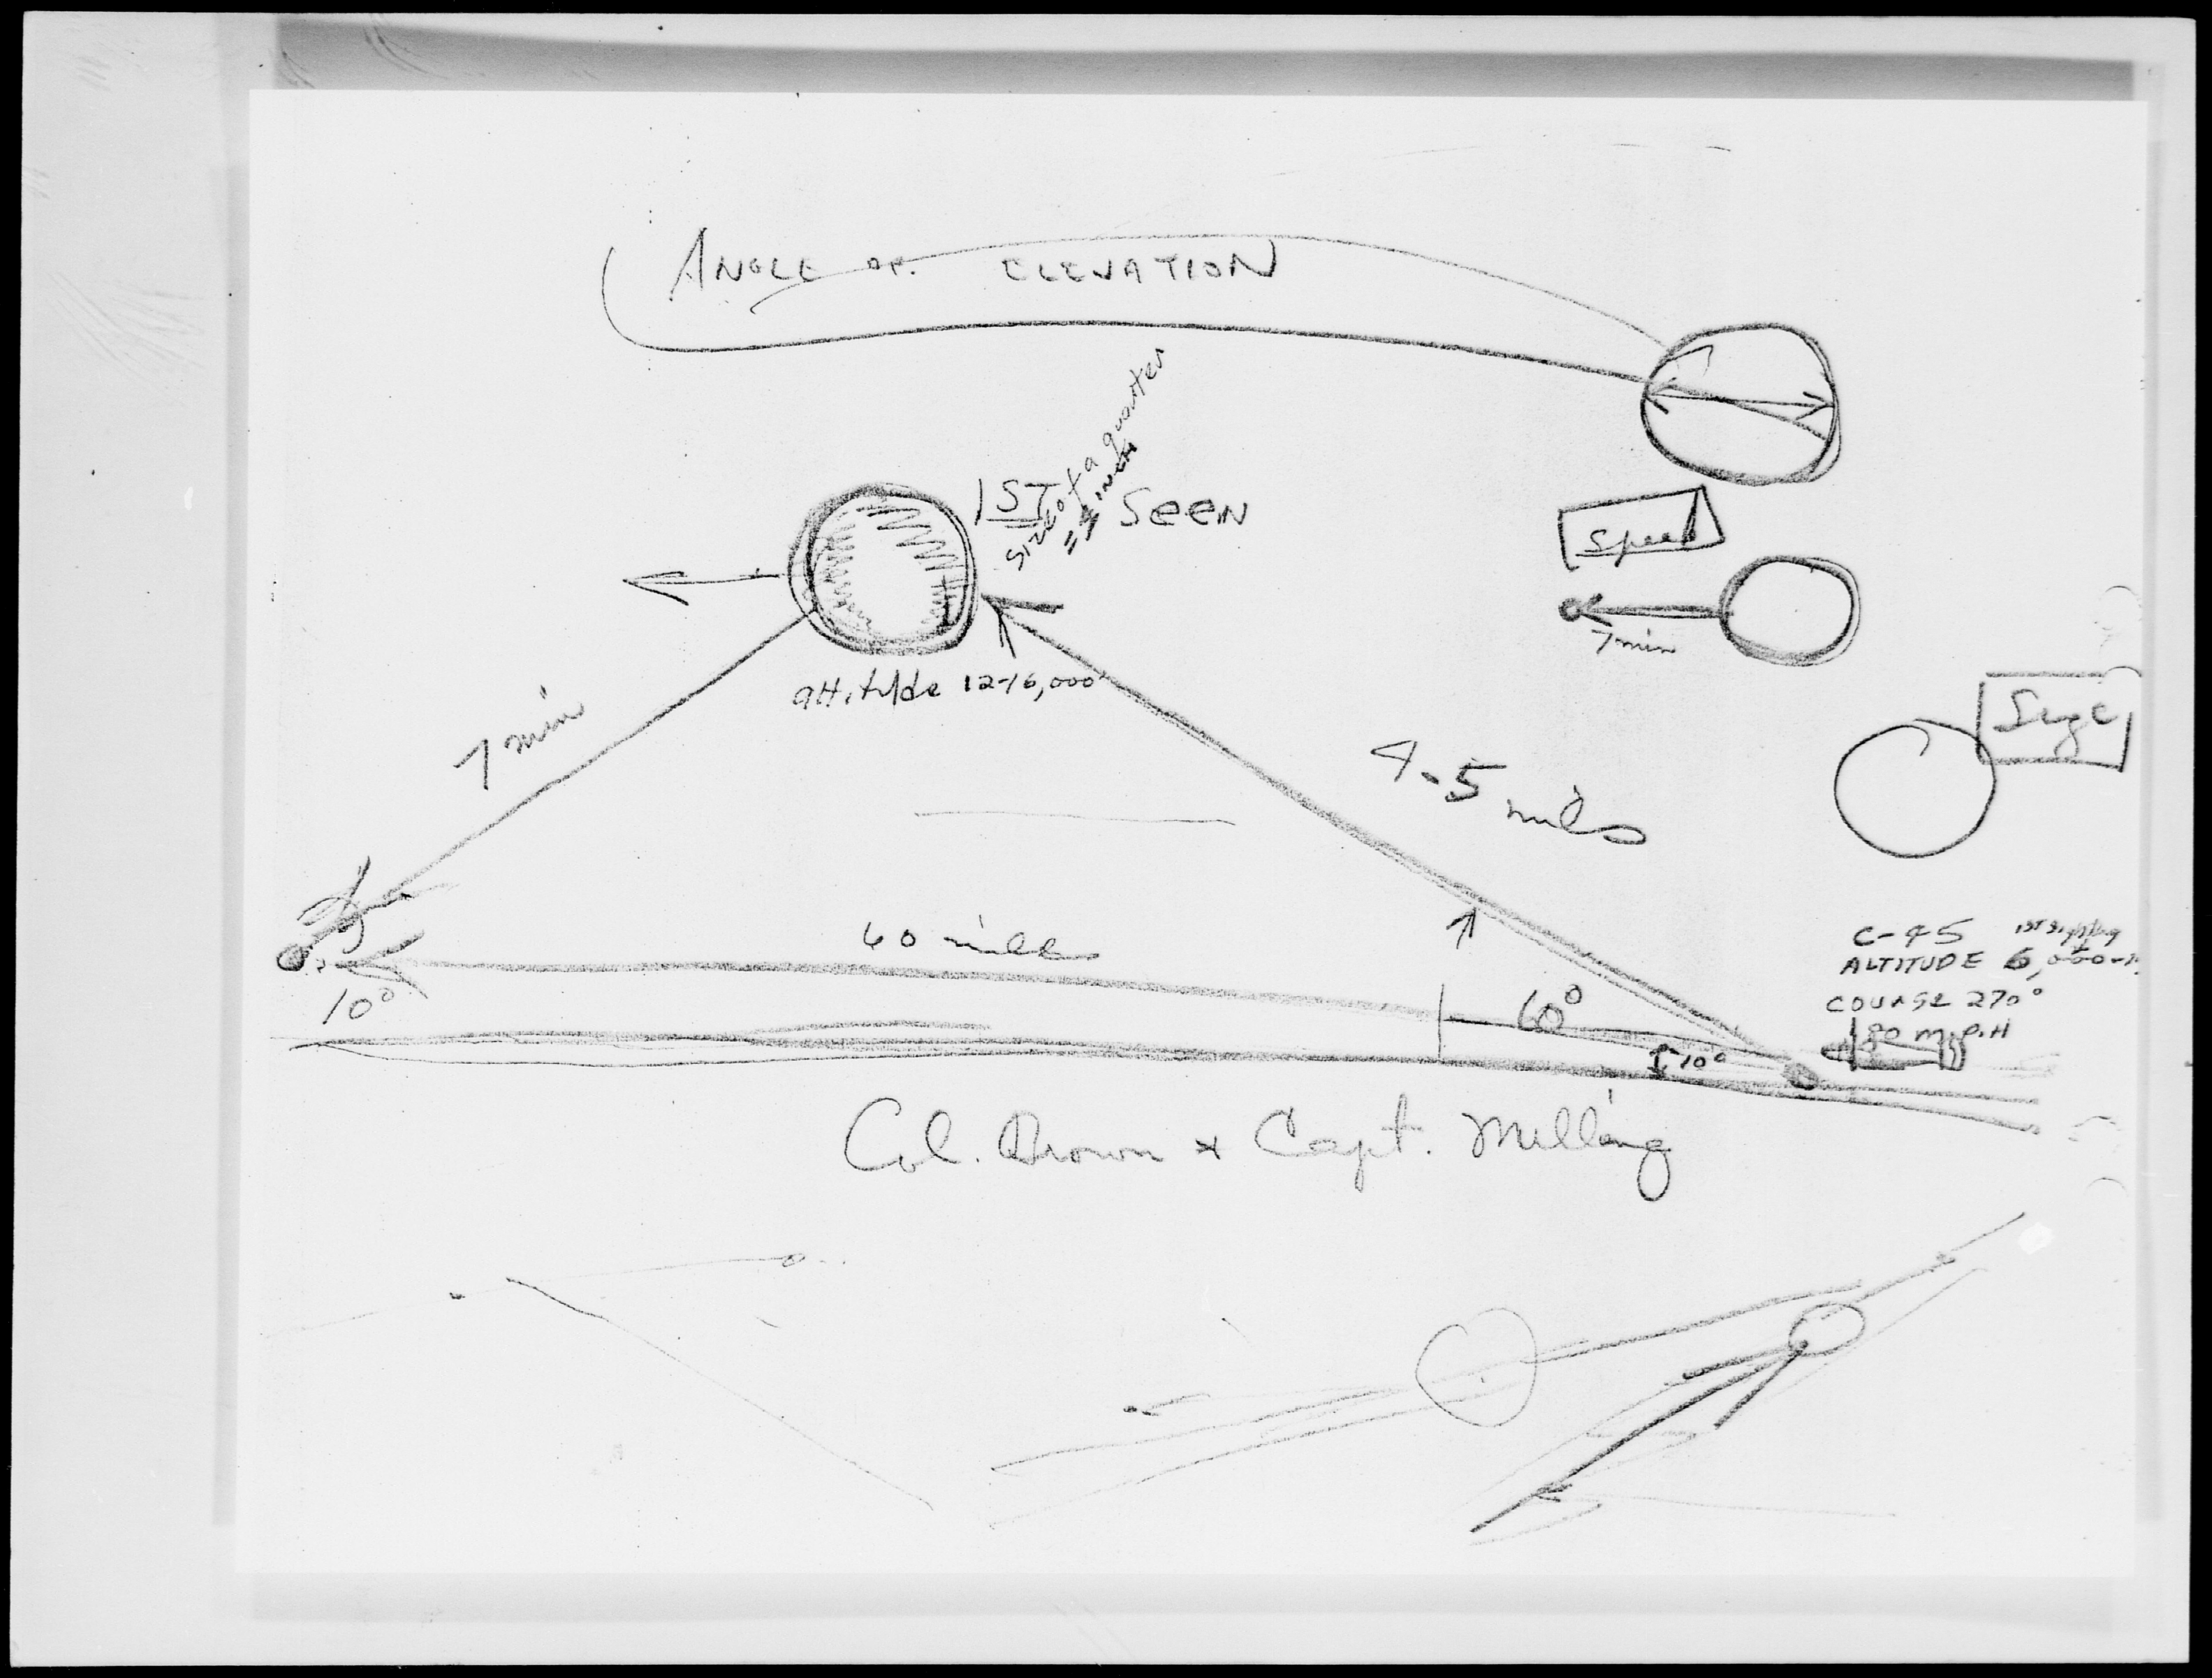 ANGLE OF ELEVATION
size of a quarter
1ST SEEN
= INCH
Speed
7 min
altitude 12-16,000'
Size
7 min
4-5 miles
C-45 1st sighting
ALTITUDE 6,000
60 miles
COURSE 270°
10°
60°
180 M.P.H
10°
Col. Brown & Capt. Milling